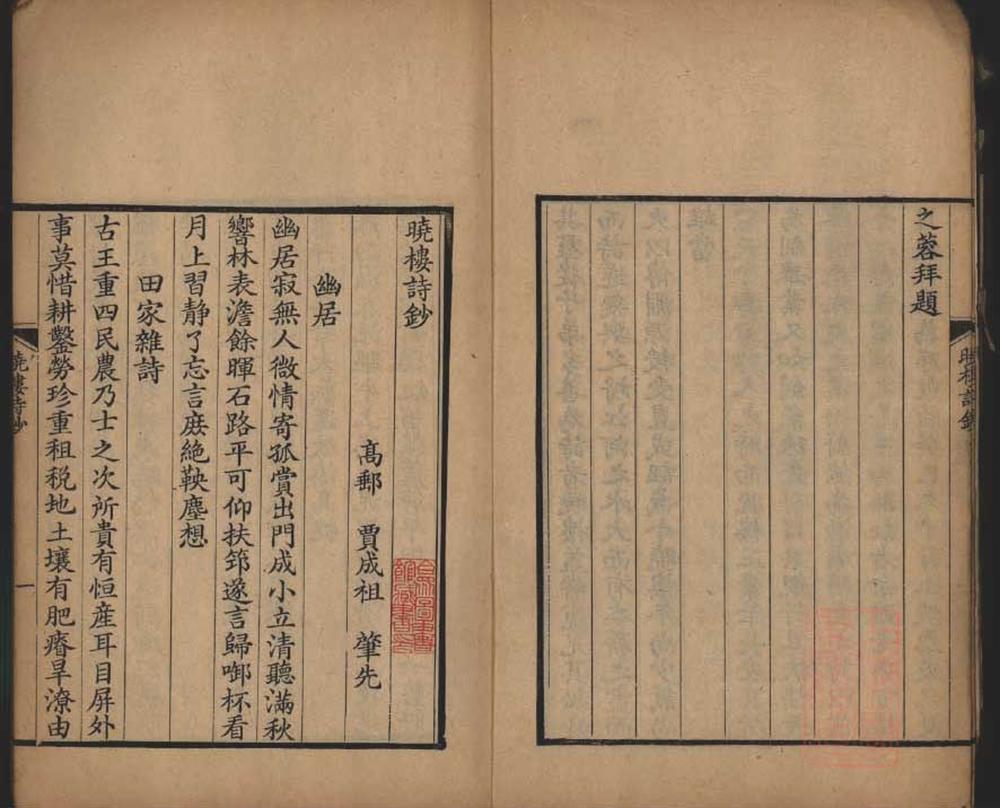 之蓉拜題
曉樓詩鈔
高郵　賈成祖　肇先
幽居
幽居寂無人微情寄孤賞出門成小立清聽滿秋
響林表澹餘暉石路平可仰扶筇邃言歸啣杯看
月上習靜了忘言庶絶鞅塵想
田家雜詩
古王重四民農乃士之次所貴有恒産耳目屏外
事莫惜耕鑿勞珍重租税地土壤有肥瘠旱潦由
曉樓詩鈔
一